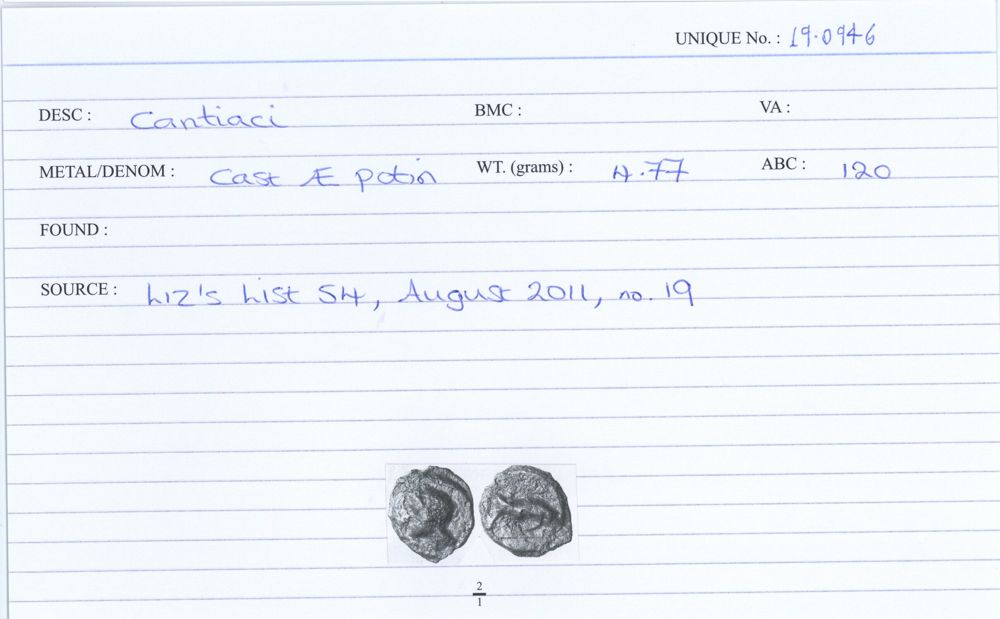 UNIQUE No. : 19.0946
DESC : Cantiaci BMC : VA :
METAL/DENOM : Cast Æ potin WT. (grams) : 4.77 ABC : 120
FOUND :
SOURCE : Liz's List 54, August 2011, no. 19
2
1